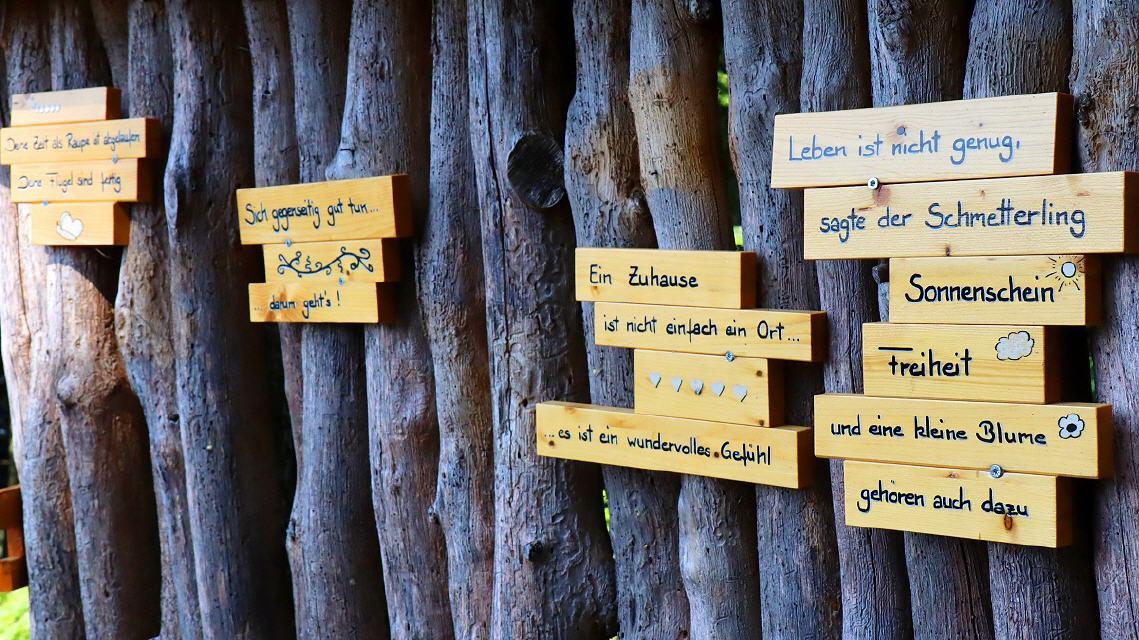 Deine Zeit als Raupe ist abgelaufen
Deine Flügel sind fertig
Sich gegenseitig gut tun...
... darum geht's !
Ein Zuhause
ist nicht einfach ein Ort...
...es ist ein wundervolles Gefühl
Leben ist nicht genug,
sagte der Schmetterling
Sonnenschein
Freiheit
und eine kleine Blume
gehören auch dazu